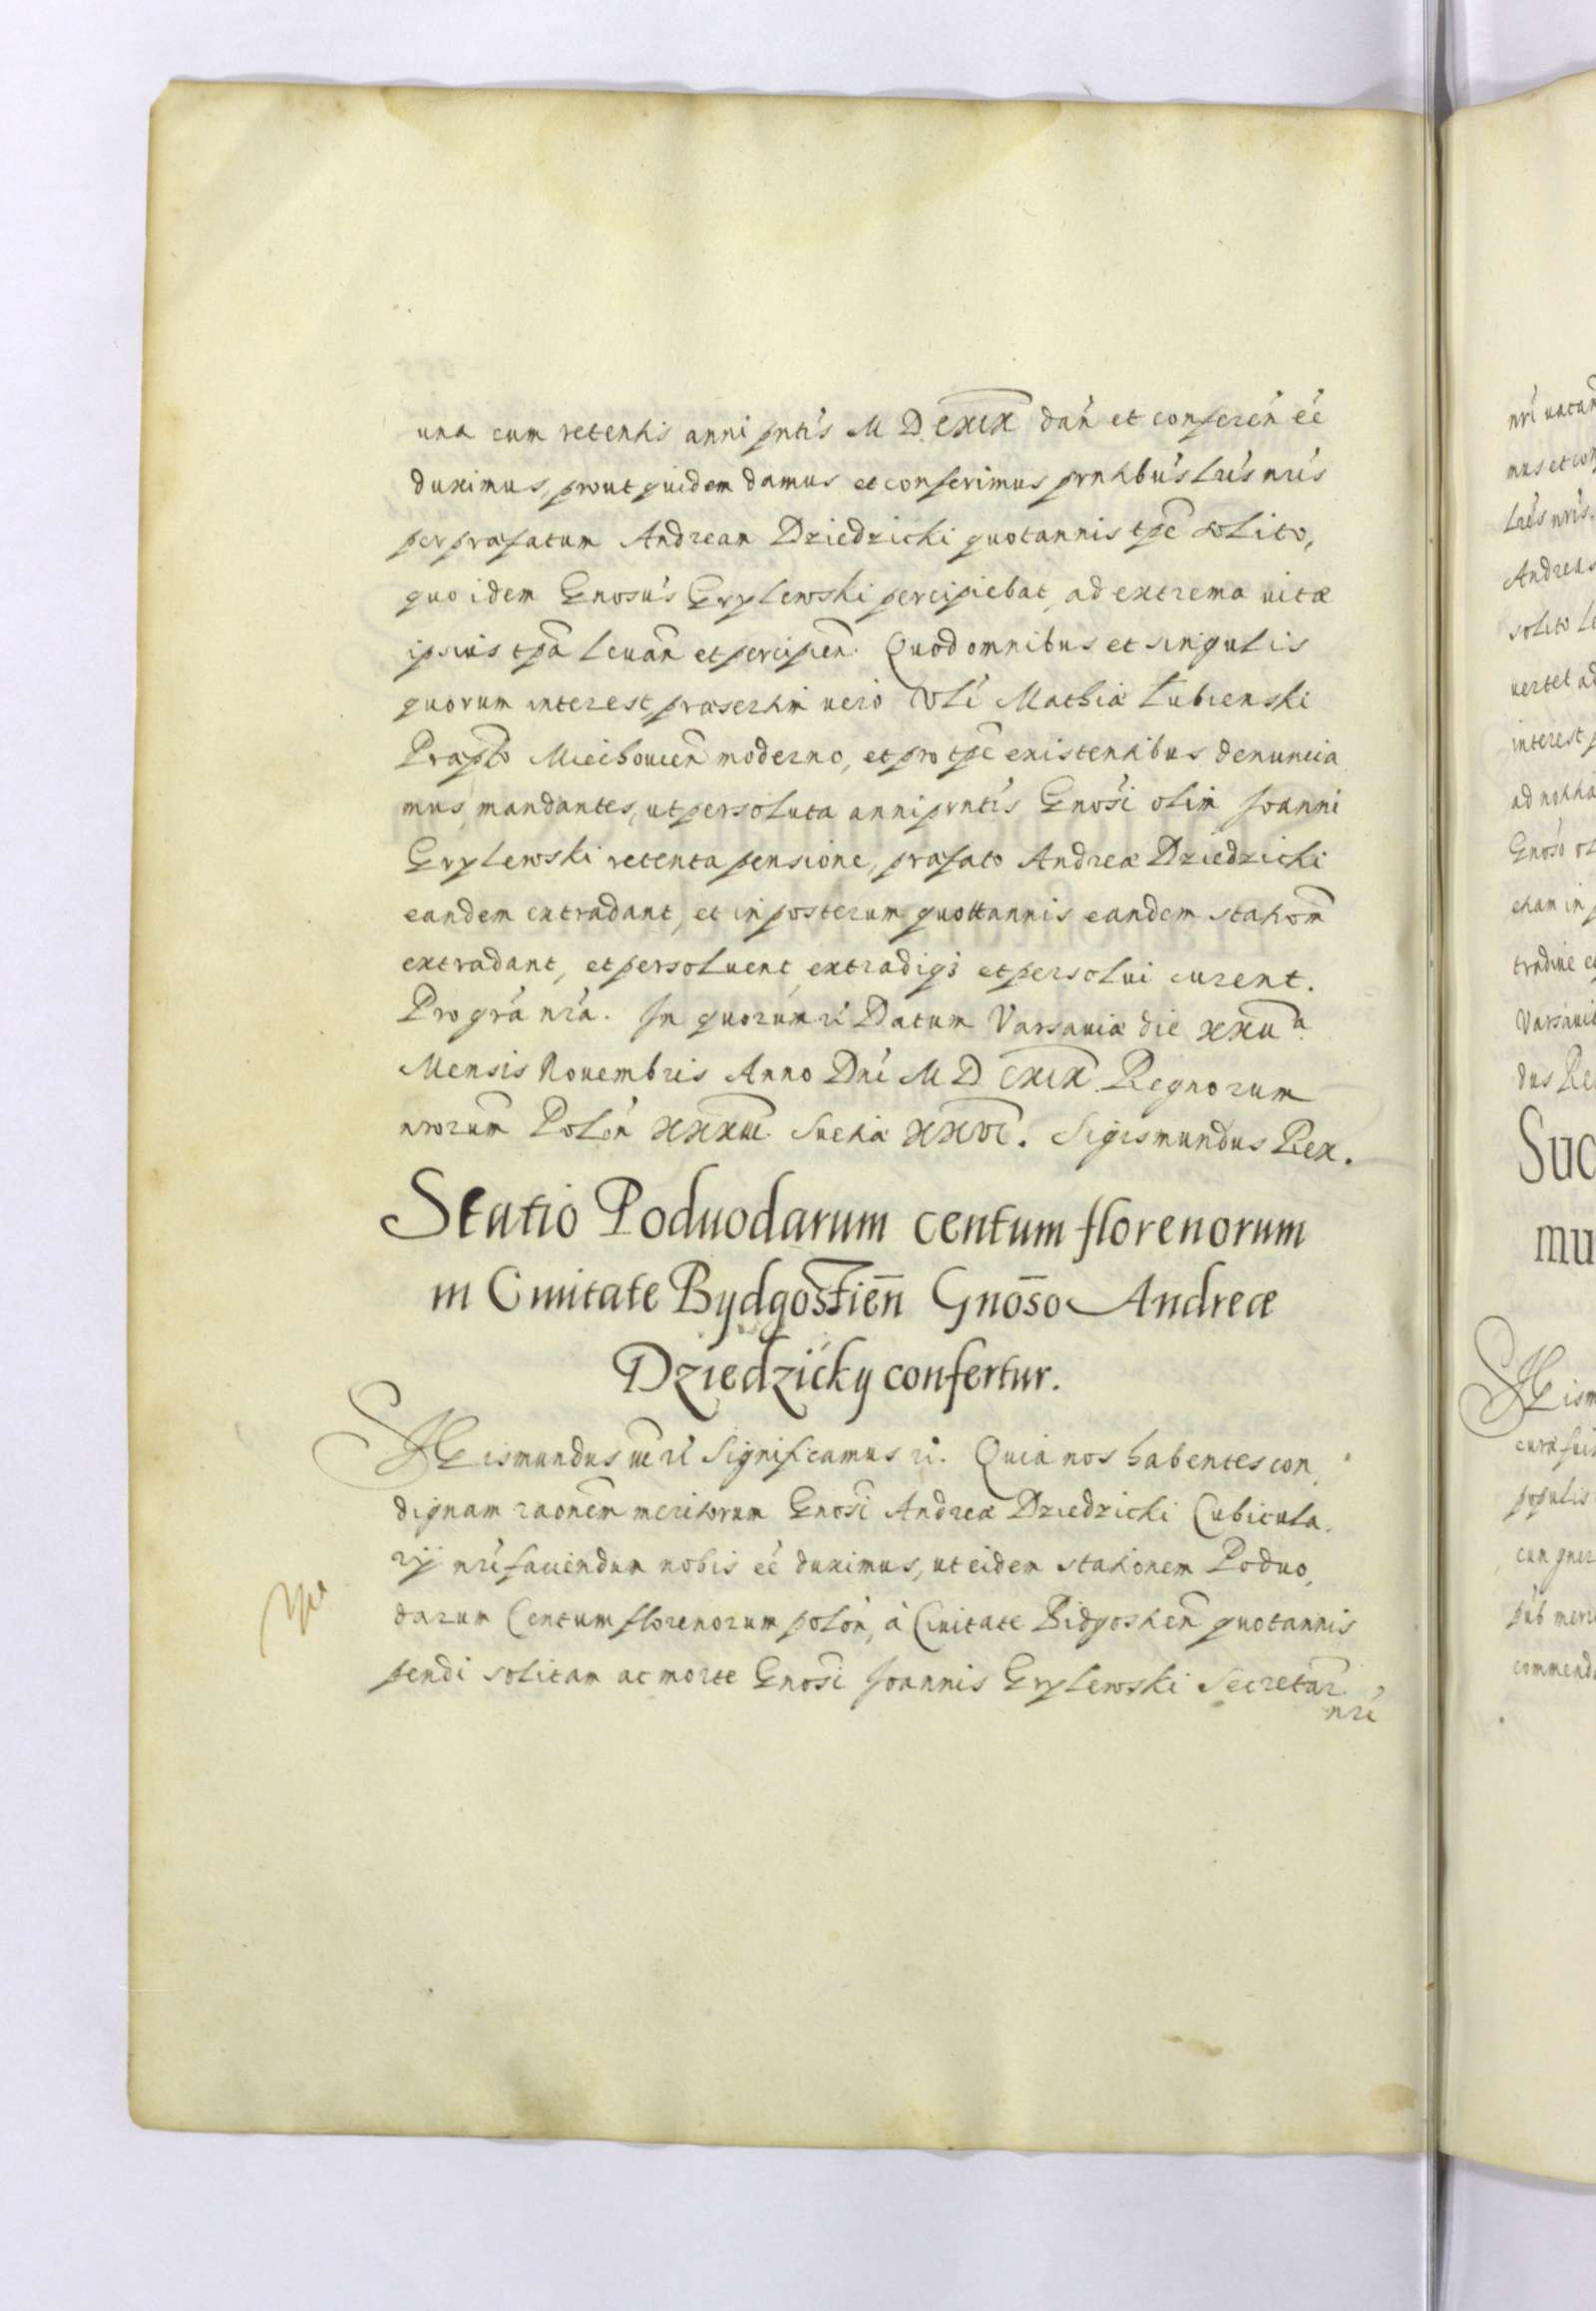 una cum retentis anni pntis M D CXIX dan et conferen ee
duximus, prout quidem damus et conferimus prntibus lris nris
per præfatum Andream Dziedzicki quotannis tpe solito,
quo idem Gnosus Grylewski percipiebat, ad extrema vitæ
ipsius tpa levan et percipien. Quod omnibus et singulis
quorum interest, præsertim vero Vbli Mathiæ Łubienski
Præpto Miechouien moderno, et pro tpe existentibus denuncia
mus, mandantes, ut persoluta anni prntis Gnosi olim Joanni
Grylewski retenta pensione, præfato Andreæ Dziedzicki
eandem extradant, et in posterum quottannis eandem stationm
extradant, et persoluent, extradiqз et persolui curent.
Pro gra nra. In quorum rei Datum Varsauiæ die xxv a
Mensis Nouembris Anno Dni M D CXIX Regnorum
nrorum Polon XXXII Sueciæ XXVI. Sigismundus Rex.
Statio Poduodarum centum florenorum
in Ciuitate Bydgostien Gnoso Andreæ
Dziedzicky confertur.
Sigismundus III rl Significamus ri. Quia nos habentes con
dignam raonem meritorum Gnosi Andreæ Dziedzicki Cubicula
rij nri faciendum nobis ee duximus, ut eidem stationem Poduo
darum Centum florenorum polon, à Ciuitate Bidgostien quotannis
pendi solitam ac morte Gnosi Joannis Grylewski Secretar
nri